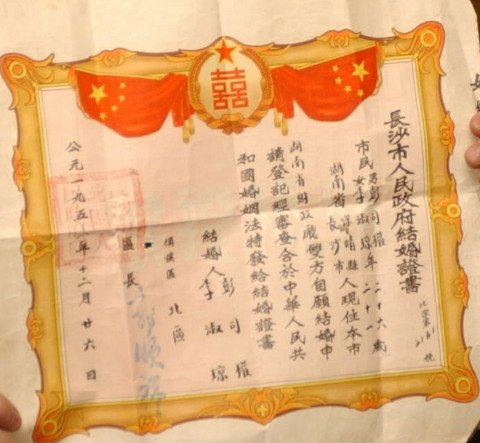 囍
長沙市人民政府結婚證書
北字第2161號
市民男彭司催年二十六歲
女李淑琼年二十一
湖南省 縣人現住本市
長沙市
湖南省財政廳雙方自願結婚申
請登記經審查合於中華人民共
和國婚姻法特發給結婚證書
結婚人彭司催
李淑琼
北區
區長
公元一九五 年十二月廿六日